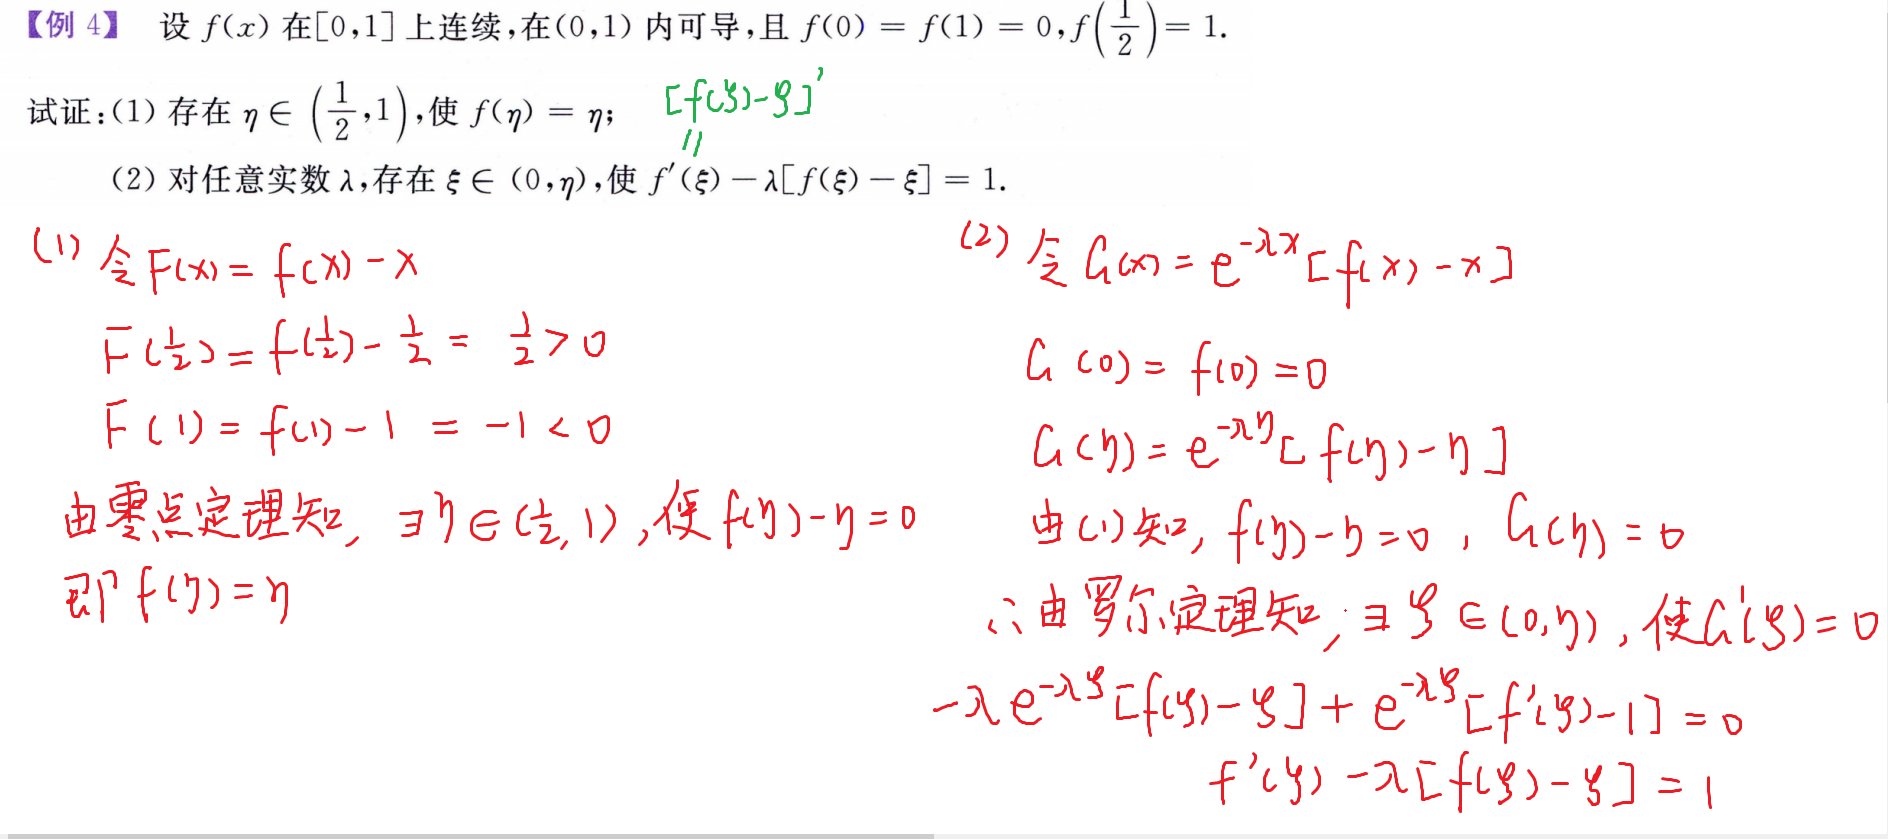 【例 4】 设 f(x) 在[0,1]上连续,在(0,1)内可导,且 f(0) = f(1) = 0, f(1/2) = 1.
试证:(1) 存在 η ∈ (1/2, 1),使 f(η) = η;
[f(ξ)-ξ]'
=
(2) 对任意实数 λ,存在 ξ ∈ (0,η),使 f′(ξ) − λ[f(ξ) − ξ] = 1.
(1) 令 F(x) = f(x) - x
F(1/2) = f(1/2) - 1/2 = 1/2 > 0
F(1) = f(1) - 1 = -1 < 0
由零点定理知, ∃η∈(1/2, 1), 使 f(η)-η=0
即 f(η) = η
(2) 令 G(x) = e^{-λx}[f(x) - x]
G(0) = f(0) = 0
G(η) = e^{-λη}[f(η) - η]
由(1)知, f(η)-η=0, G(η)=0
∴由罗尔定理知, ∃ξ∈(0,η), 使G'(ξ)=0
-λe^{-λξ}[f(ξ)-ξ] + e^{-λξ}[f'(ξ)-1] = 0
f'(ξ) - λ[f(ξ)-ξ] = 1